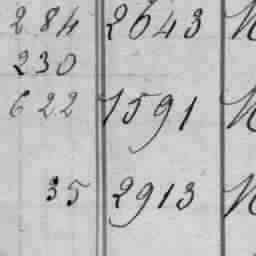 284 2643
230
622 1591
35 2913